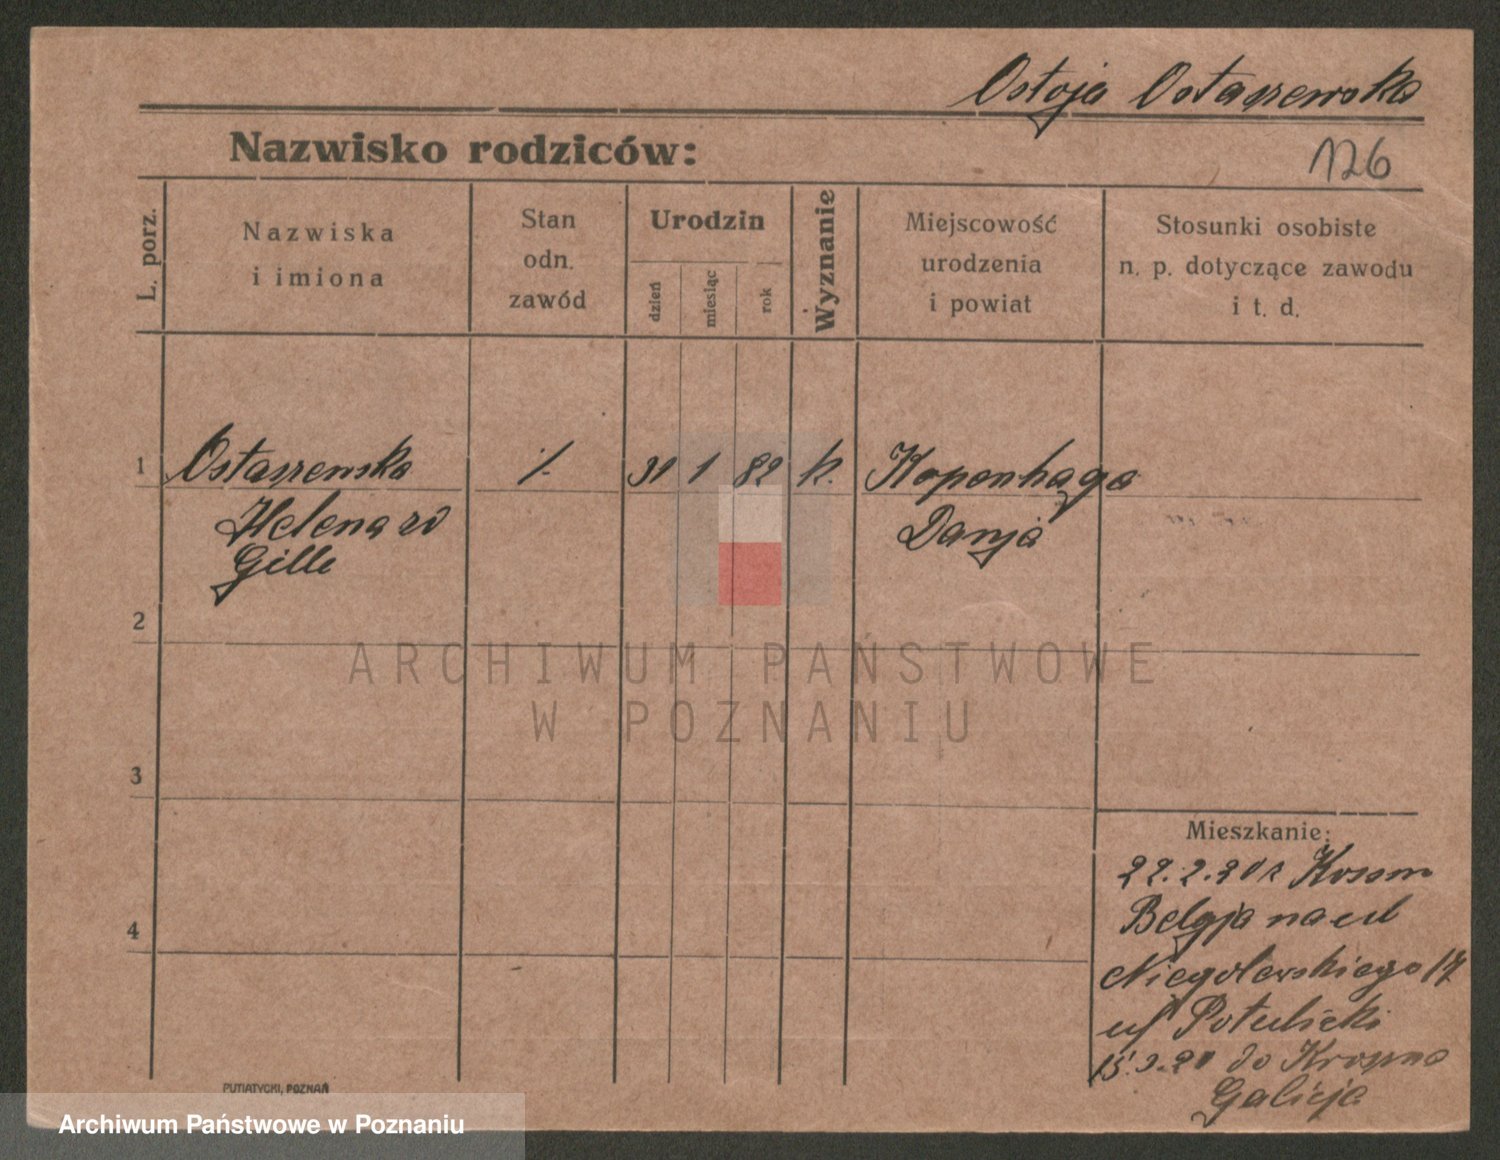 Ostoja Ostaszewska
Nazwisko rodziców:
126
L. porz.
Nazwiska
i imiona
Stan
odn.
zawód
Urodzin
dzień
miesiąc
rok
Wyznanie
Miejscowość
urodzenia
i powiat
Stosunki osobiste
n. p. dotyczące zawodu
i t. d.
1 Ostaszewska /- 31 1 82 k. Kopenhaga
Helena
Gille
Danja
2
ARCHIWUM PAŃSTWOWE
W POZNANIU
3
Mieszkanie:
22.2.20
Belgja na ul
4
Niegolewskiego 17
Potulicki
15.3.20 do Krosna
Galicja
PUTIATYCKI, POZNAŃ
Archiwum Państwowe w Poznaniu